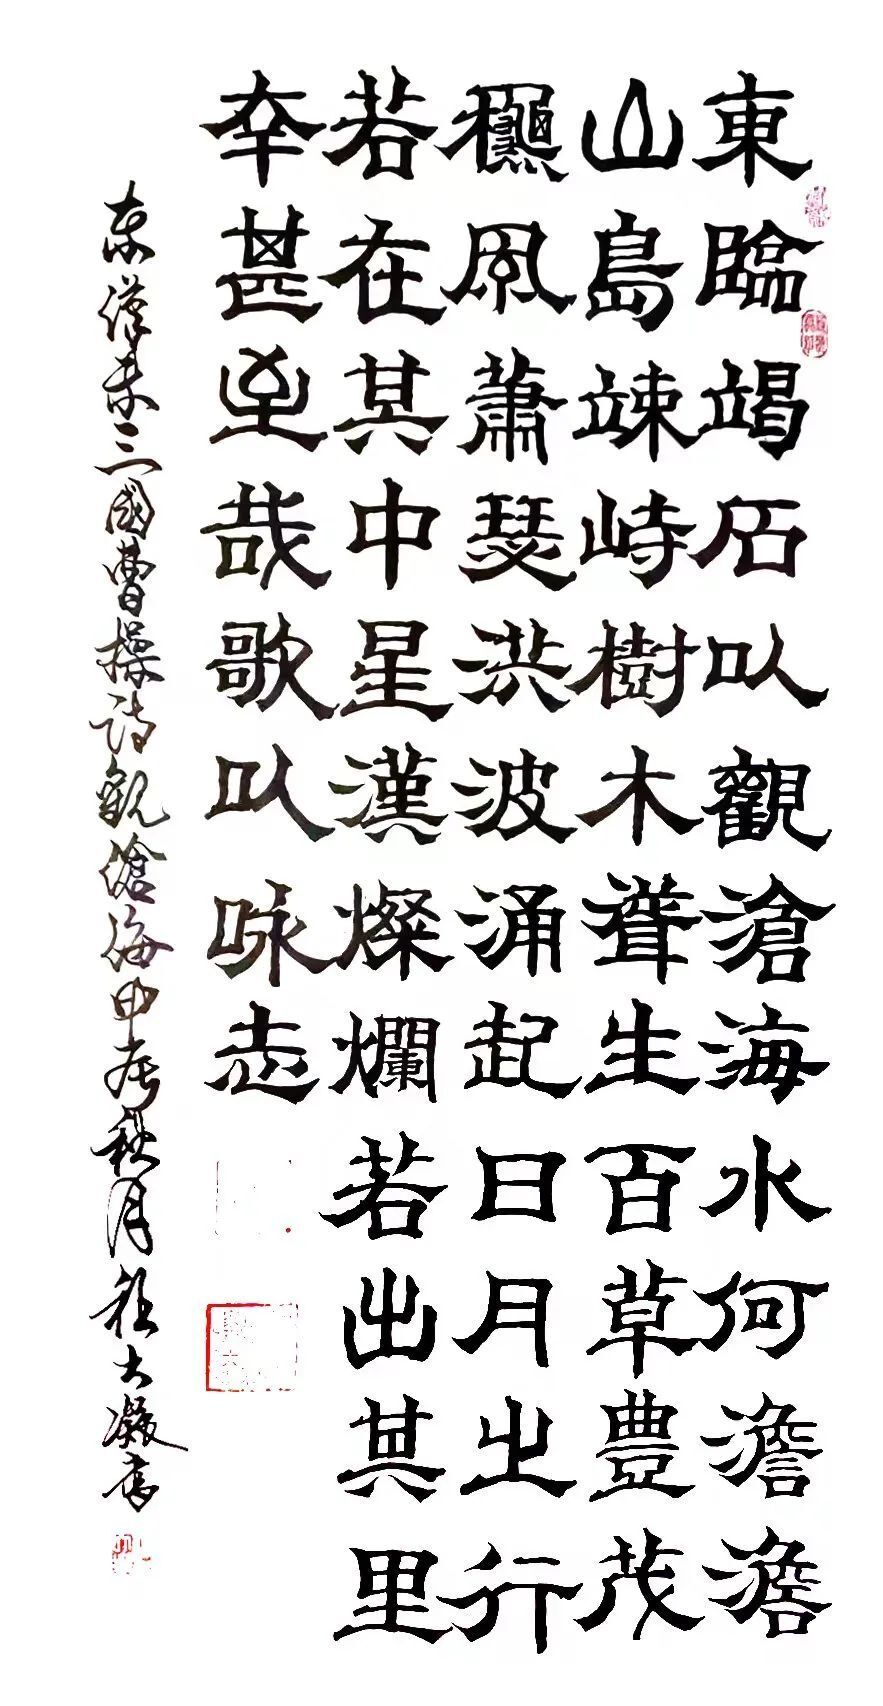 東臨竭石以觀滄海水何澹澹
山島竦峙樹木聳生百草豊茂
龝風蕭瑟洪波涌起日月之行
若在其中星漢燦爛若出其里
幸甚至哉歌以咏志
东漢末三國曹操诗觀滄海甲辰秋月大凝書